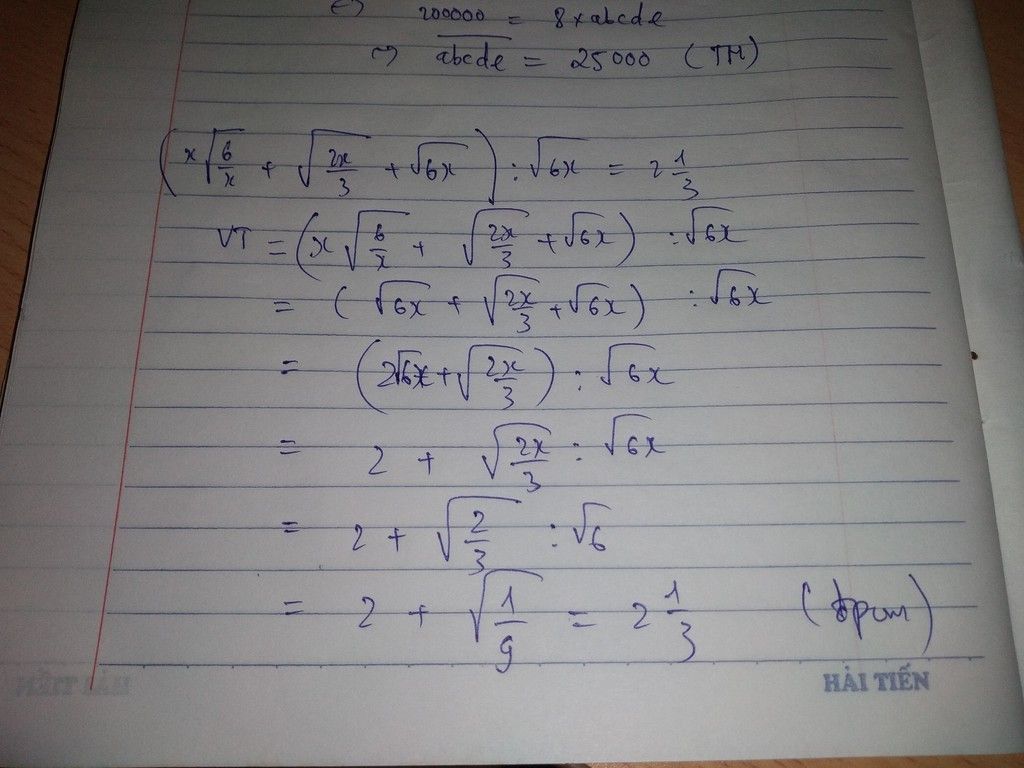 ⇔ 200000 = 8 x abcde
⇔ \overline{abcde} = 25000 (TM)
(x√(6/x) + √(2x/3) + √(6x)) : √(6x) = 2 1/3
VT = (x√(6/x) + √(2x/3) + √(6x)) : √(6x)
= (√(6x) + √(2x/3) + √(6x)) : √(6x)
= (2√(6x) + √(2x/3)) : √(6x)
= 2 + √(2x/3) : √(6x)
= 2 + √(2/3) : √6
= 2 + √(1/9) = 2 1/3 (đpcm)
HẢI TIẾN